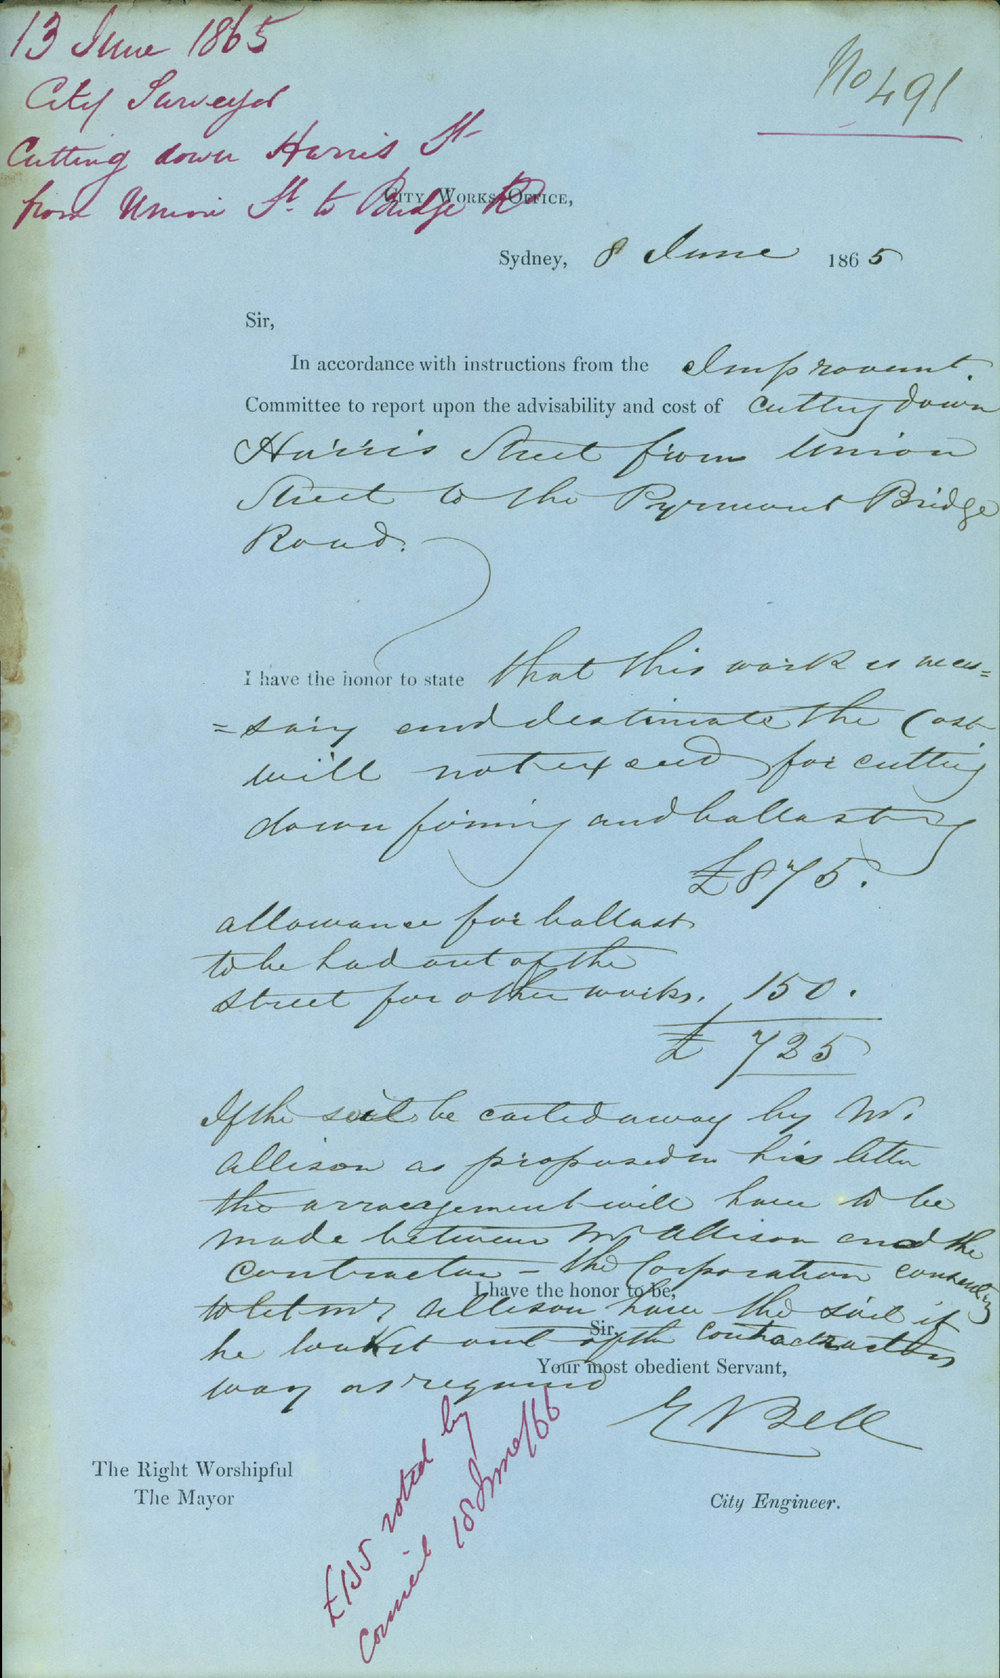 13 June 1865
City Surveyor
Cutting down Harris St
from Union St. to Bridge R
No 491
City Works Office,
Sydney, 8 June 1865
Sir,
In accordance with instructions from the Improvemt.
Committee to report upon the advisability and cost of cutting down
Harris Street from Union
Street to the Pyrmont Bridge
Road.
I have the honor to state that this work is neces=
=sary and I estimate the Cost
will not exceed for cutting
down forming and ballasting
£875.
allowance for ballast
to be had out of the
street for other works. 150.
£ 725
If the soil be carted away by Mr.
Allison as proposed in his letter
the arrangement will have to be
made between Mr Allison and the
contractor – the Corporation consenting
to let Mr Allison have the soil if
he takes it out of the contractors
way as required
I have the honor to be,
Sir,
Your most obedient Servant,
E Bell
The Right Worshipful
The Mayor
City Engineer.
voted by
Council 18 June/66